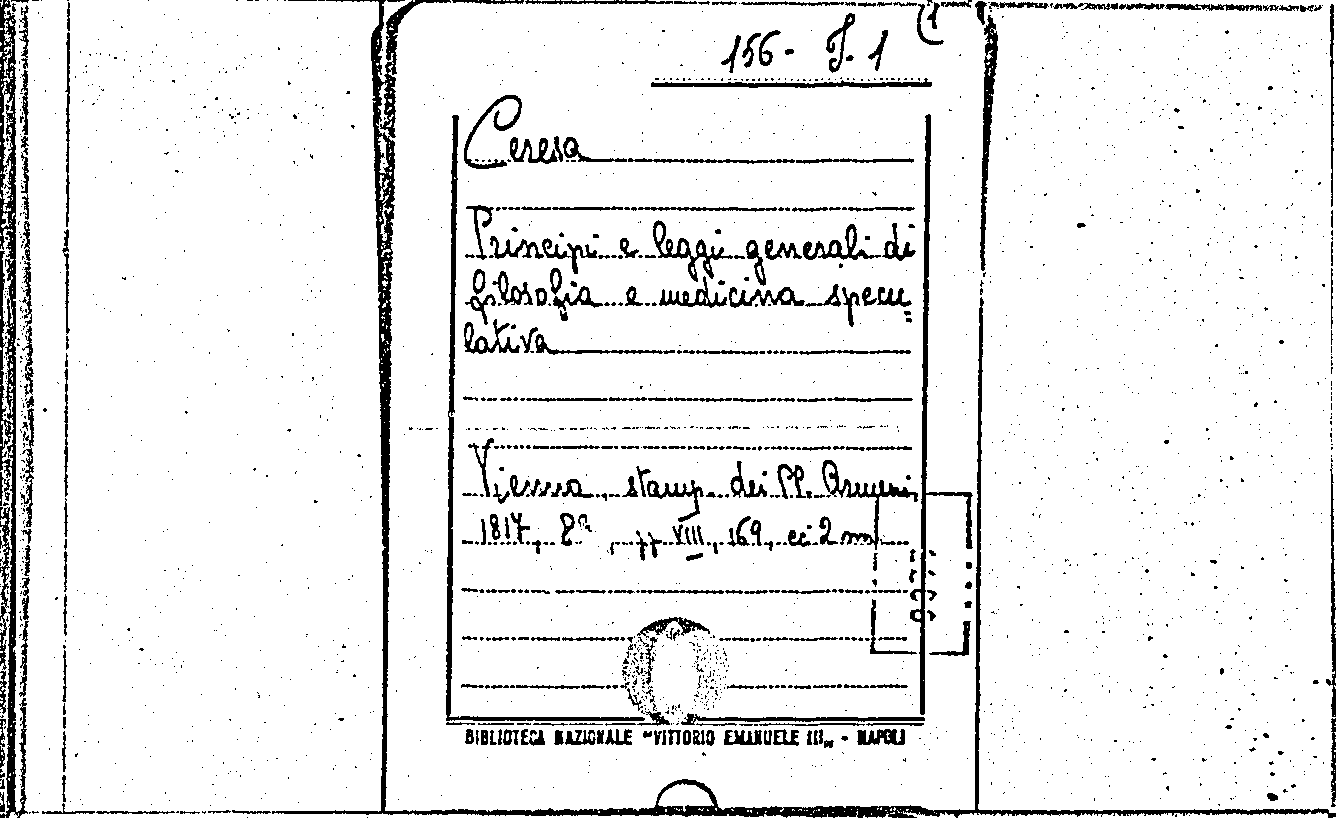 156- J. 1 (1
Ceresa
Principi e leggi generali di
filosofia e medicina specu
lativa
Vienna, stamp. dei PP. Armeni,
1817, 8º, pp VIII, 169, ci 2 m
BIBLIOTECA NAZIONALE "VITTORIO EMANUELE III„ - NAPOLI